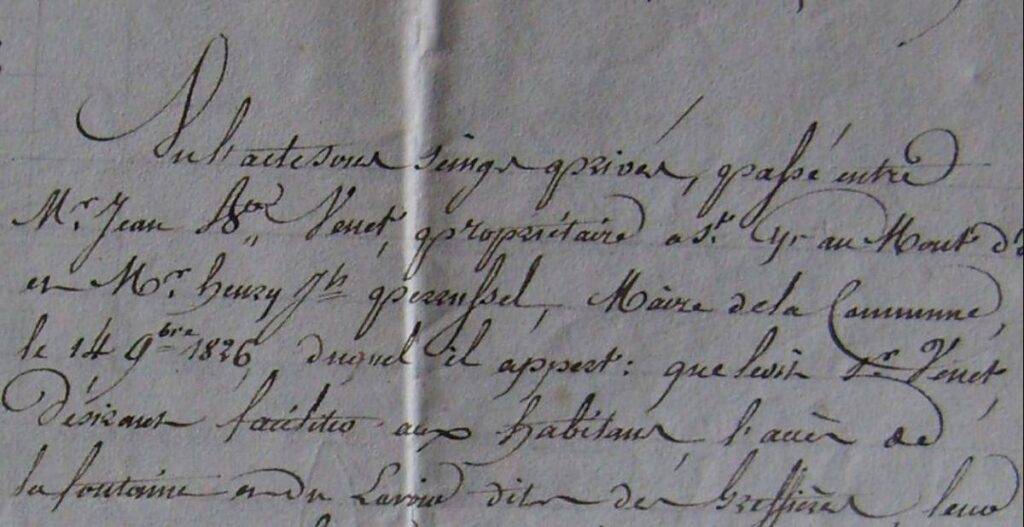 Vu l'acte sous seings privés, passé entre
Mr. Jean Bte Venet, propriétaire a St. Cyr au Mont d'o
et Mr. henry Jh perrussel, Maire de la Commune,
le 14 9bre 1826, duquel il appert: que ledit Sr Venet,
Désirant faciliter aux habitans l'accès de
la fontaine et du Lavoir dits des Greffières, leur